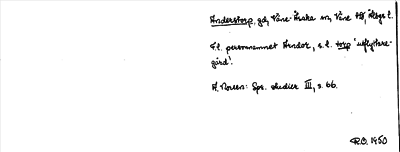 Anderstorp, gd, Väne-Åsaka sn, Väne hd, Älvsb. l.
F.l. personnamnet Andor, s.l. torp 'utflyttare-
gård'.
A. Noreen: Spr. studier III, s. 66.
R.O. 1950